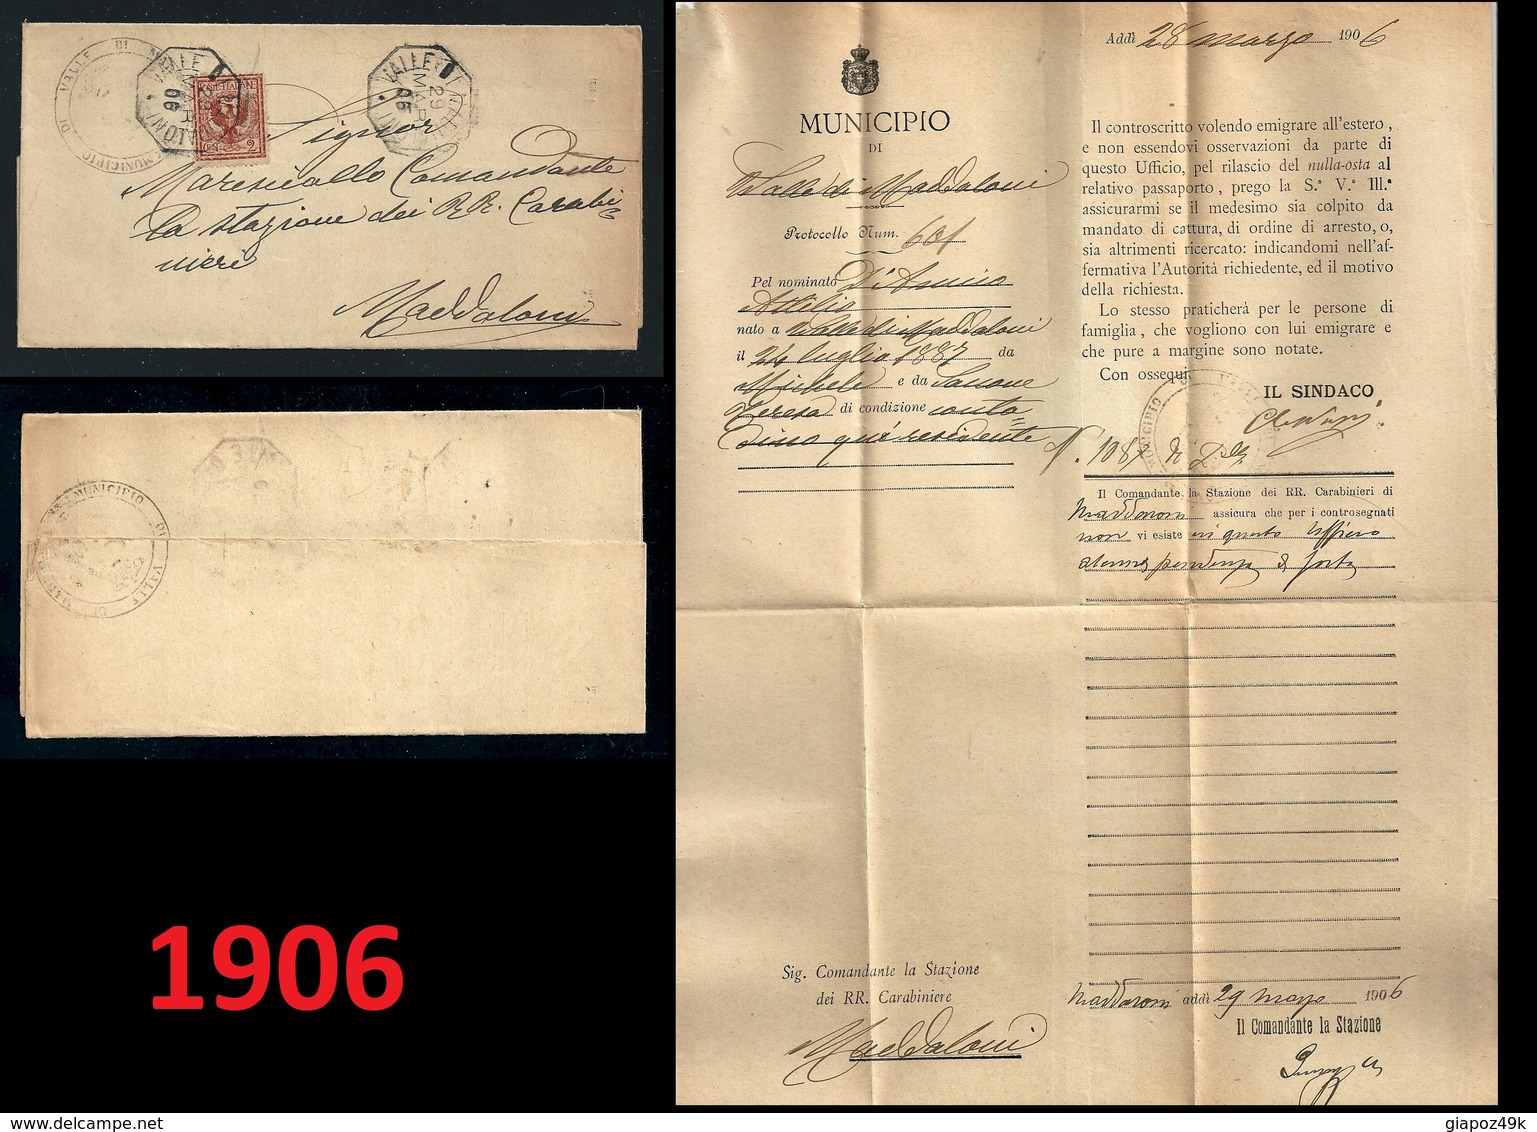 Signor
Maresciallo Comandante
la stazione dei RR. Carabi=
niere
Maddaloni
MUNICIPIO DI VALLE DI
VALLE DI
29
MAR
06
CEN. 2
MUNICIPIO DI VALLE DI
1906
MUNICIPIO
DI
Valle di Maddaloni
Protocollo Num. 601
Pel nominato D'Amico
Attilio
nato a Valle di Maddaloni
il 24 luglio 1887 da
Michele e da Sannone
Teresa di condizione conta=
dino qui residente
Sig. Comandante la Stazione
dei RR. Carabiniere
Maddaloni
Addì 28 marzo 1906
Il controscritto volendo emigrare all'estero,
e non essendovi osservazioni da parte di
questo Ufficio, pel rilascio del nulla-osta al
relativo passaporto, prego la S.ª V.ª Ill.ª
assicurarmi se il medesimo sia colpito da
mandato di cattura, di ordine di arresto, o,
sia altrimenti ricercato: indicandomi nell'af-
fermativa l'Autorità richiedente, ed il motivo
della richiesta.
Lo stesso praticherà per le persone di
famiglia, che vogliono con lui emigrare e
che pure a margine sono notate.
Con ossequi
IL SINDACO
N. 108
Il Comandante la Stazione dei RR. Carabinieri di
Maddaloni assicura che per i controsegnati
non vi esiste in questo Ufficio
alcuna pendenza di sorta
Maddaloni addì 29 marzo 1906
Il Comandante la Stazione
giapoz49k